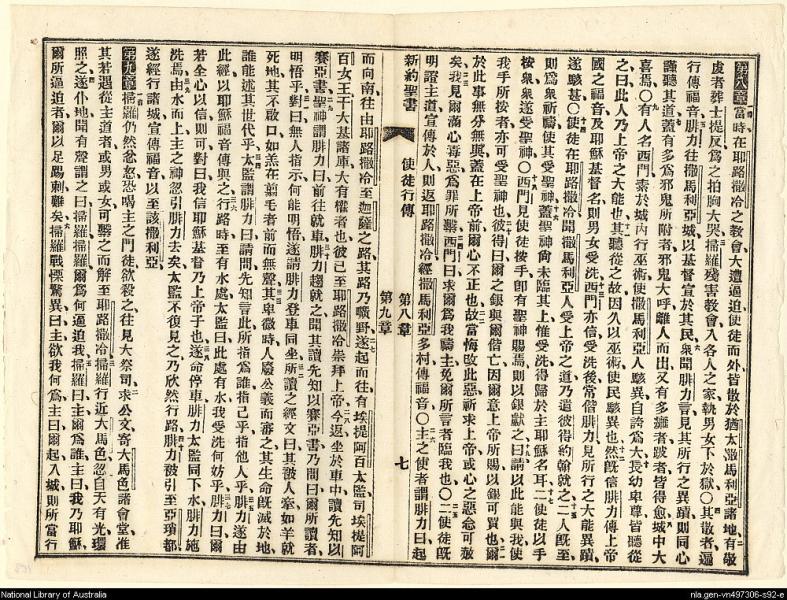 第八章當時在耶路撒冷之教會大遭逼迫使徒而外皆散於猶太撒馬利亞諸地有敬
虔者葬士提反為之拍胸大哭掃羅殘害教會入各人之家執男女下於獄〇其散者遍
行傳福音腓力往撒馬利亞城以基督宣於其民眾聞腓力言見其所行之異蹟則同心
謹聽其道蓋有多為邪鬼所附者邪鬼大呼離人而出又有多癱者跛者皆得愈城中大
喜焉〇有人名西門素於城內行巫術使撒馬利亞人駭異自誇為大長幼卑尊皆聽從
之曰此人乃上帝之大能也其聽從之故因久以巫術使民駭異也然既信腓力傳上帝
國之福音及耶穌基督名則男女受洗西門亦信受洗後常偕腓力見所行之大能異蹟
遂駭甚〇使徒在耶路撒冷聞撒馬利亞人受上帝之道乃遣彼得約翰就之二人既至
則為眾祈禱使其受聖神蓋聖神尚未臨其上惟受洗得歸於主耶穌名耳二使徒以手
按眾眾遂受聖神〇西門見使徒按手即有聖神賜焉則以銀獻之曰請以此能與我使
我手所按者亦可受聖神也彼得曰爾之銀與爾偕亡因爾意上帝所賜以銀可買也爾
於此事無分無與蓋在上帝前爾心不正也故當悔改此惡祈求上帝或心之惡念可赦
矣我見爾滿心毒惡為罪所繫西門曰求爾為我禱主免爾所言者臨我也〇二使徒既
明證主道宣傳於人則返耶路撒冷經撒馬利亞多村傳福音〇主之使者謂腓力曰起
新約聖書 使徒行傳 第八章 七
第九章
而向南往由耶路撒冷至迦薩之路其路乃曠野遂起而往有埃提阿百太監司埃提阿
百女王干大基諸庫大有權者也彼已至耶路撒冷崇拜上帝今返坐於車中讀先知以
賽亞書聖神謂腓力曰前往就車腓力趨就之聞其讀先知以賽亞書乃問曰爾所讀者
明悟乎對曰無人指示何能明悟遂請腓力登車同坐所讀之經文曰其被人牽如羊就
死地其不啟口如羔在翦毛者前而無聲其卑微時人廢公義而審之其生命既滅於地
誰能述其世代乎太監謂腓力曰請問先知言此所指為誰指己乎指他人乎腓力遂由
此經以耶穌福音傳與之行路時至有水處太監曰此處有水我受洗何妨乎腓力曰爾
若全心以信則可對曰我信耶穌基督乃上帝子也遂命停車腓力太監同下水腓力施
洗焉由水而上主之神忽引腓力去矣太監不復見之乃欣然行路腓力被引至亞瑣都
遂經行諸城宣傳福音以至該撒利亞
第九章掃羅仍然忿忽恐嚇主之門徒欲殺之往見大祭司求公文寄大馬色諸會堂准
其若遇從主道者或男或女可繫之而解至耶路撒冷掃羅行近大馬色忽自天有光環
照之遂仆地聞有聲謂之曰掃羅掃羅爾為何逼迫我掃羅曰主爾為誰主曰我乃耶穌
爾所逼迫者爾以足踢刺難矣掃羅戰慄驚異曰主欲我何為主曰爾起入城則所當行
National Library of Australia
nla.gen-vn497306-s92-e